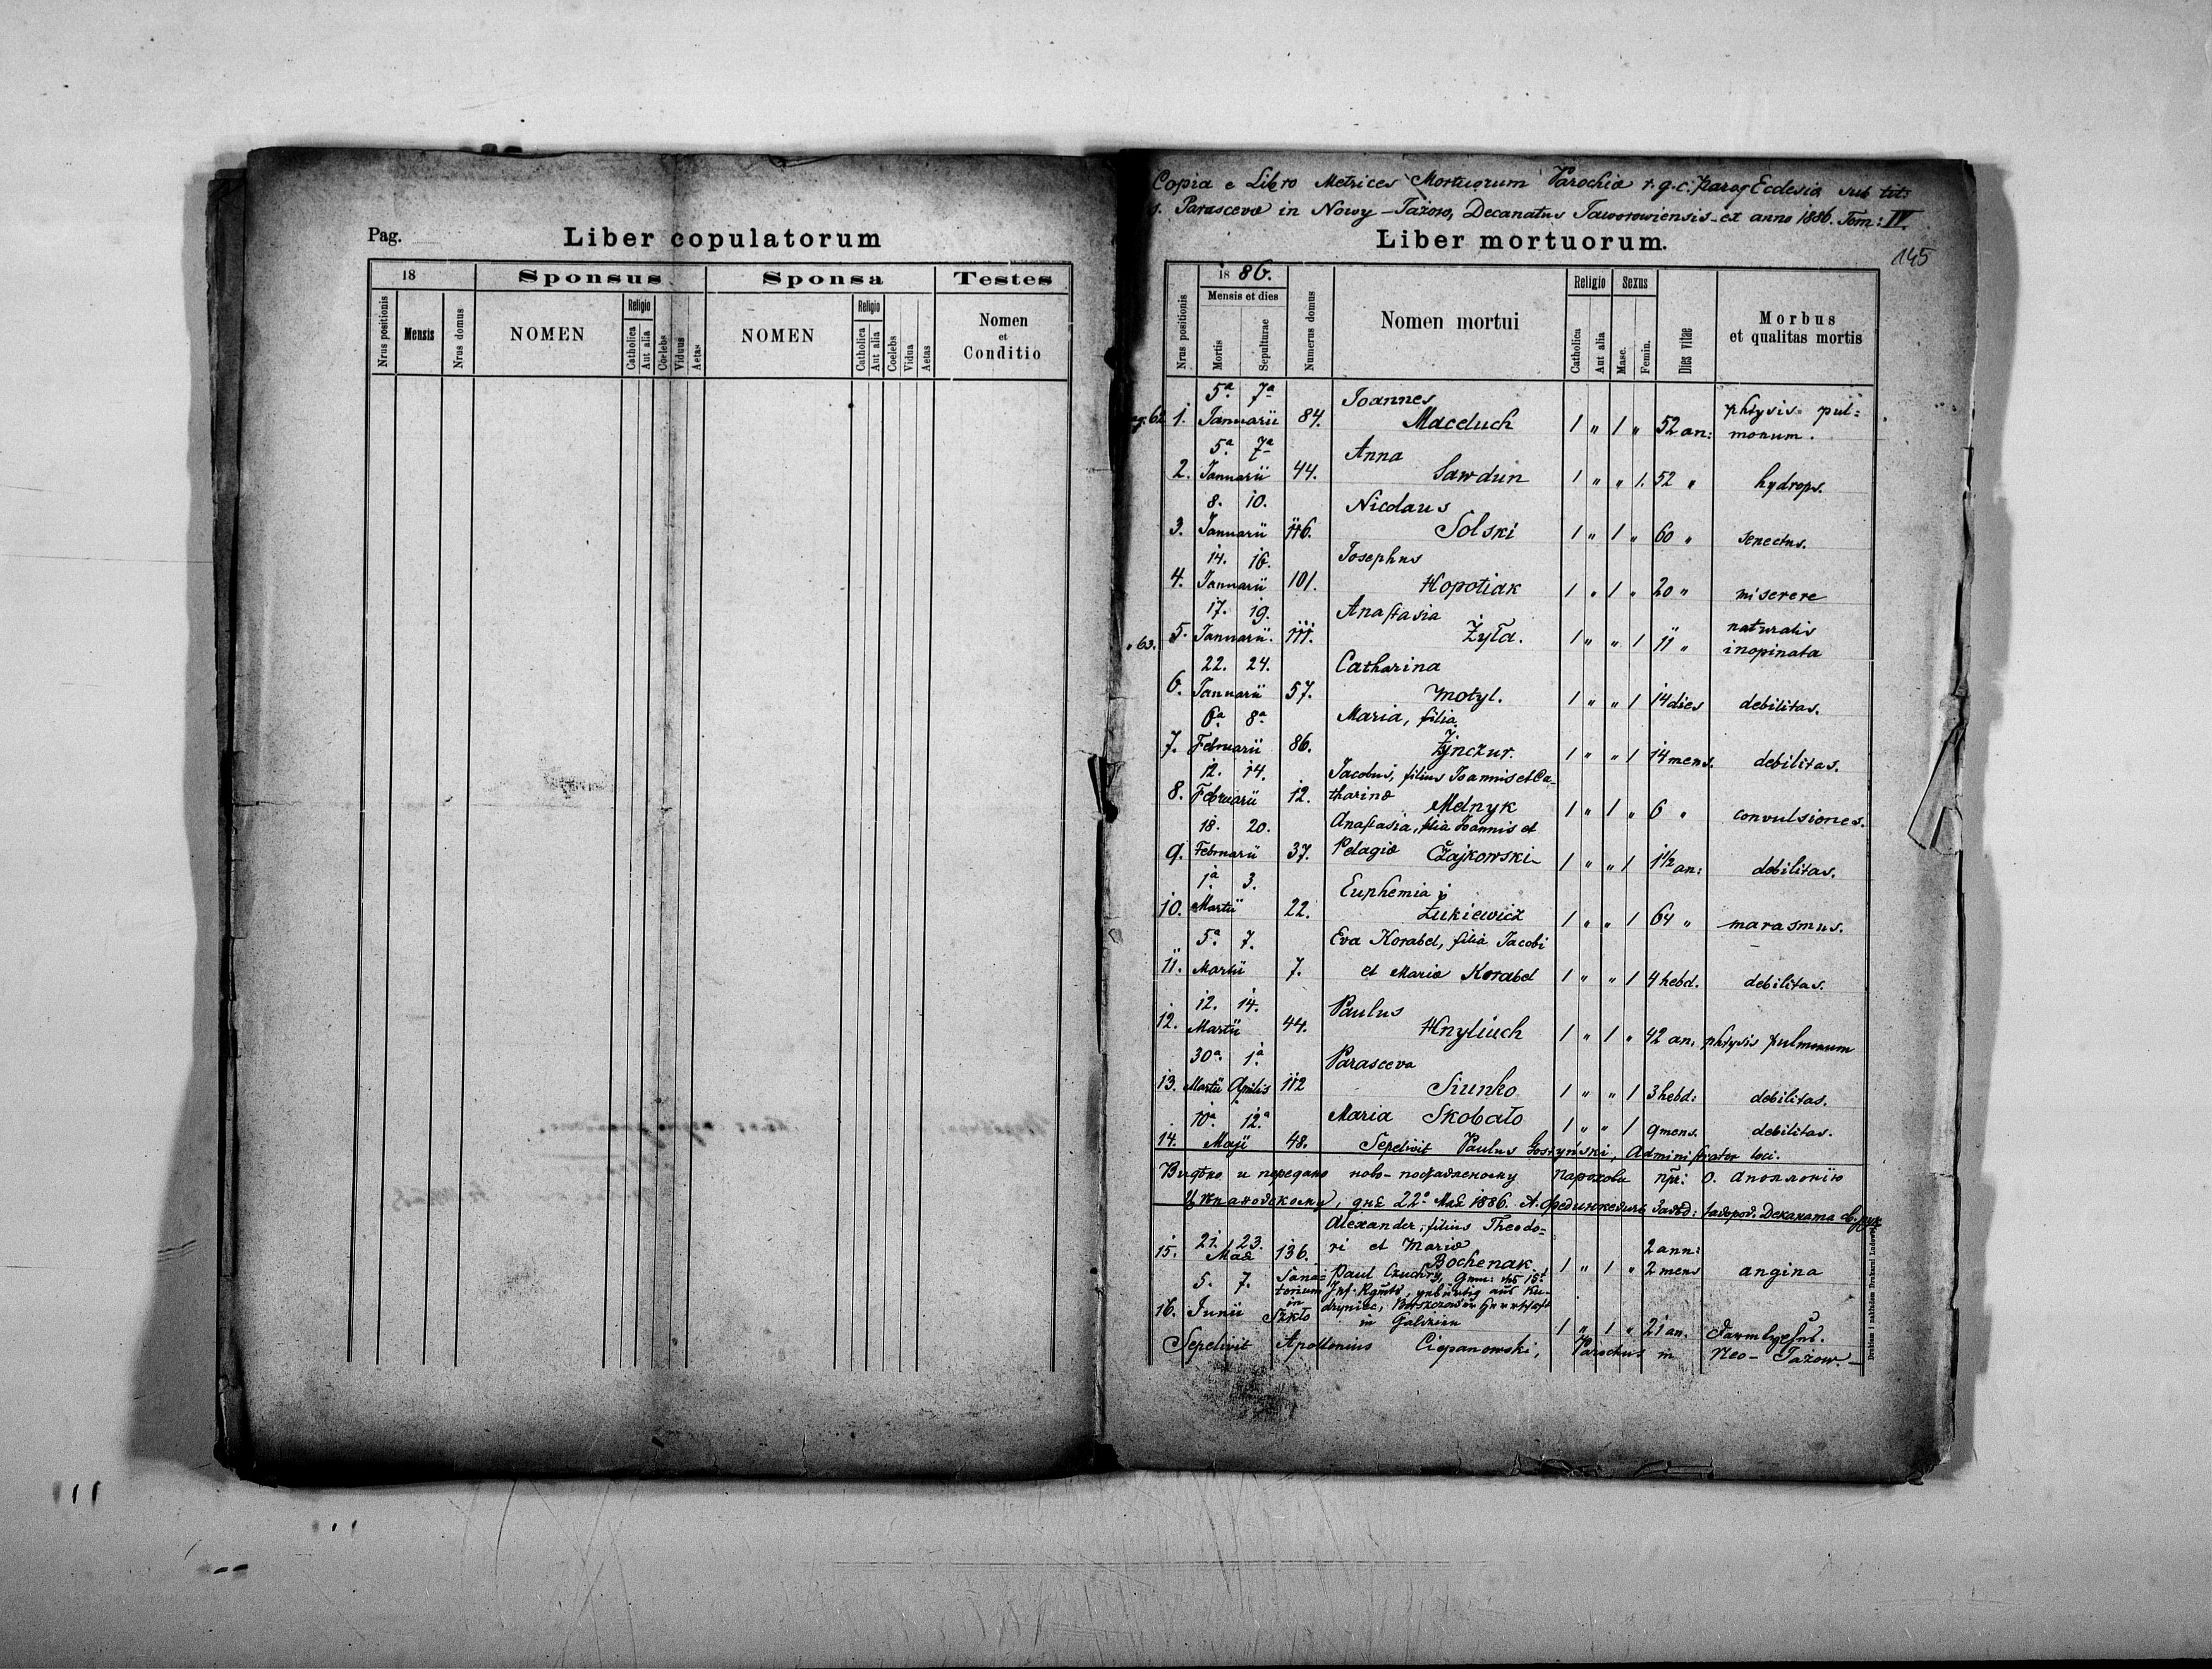 Pag.
Liber copulatorum
18
Sponsus
Sponsa
Testes
Nrus positionis
Mensis
Nrus domus
NOMEN
Religio
Catholica
Aut alia
Coelebs
Viduus
Aetas
NOMEN
Religio
Catholica
Aut alia
Coelebs
Vidua
Aetas
Nomen
et
Conditio
Copia e Libro Metrices Mortuorum Parochiæ r. g. c. Ecclesia sub tit:
s. Parascevæ in Nowy-Jażow, Decanatus Jaworowiensis ex anno 1886. Tom: IV.
Liber mortuorum.
145
Nrus positionis
18 86.
Mensis et dies
Mortis
Sepulturae
Numerus domus
Nomen mortui
Religio
Catholica
Aut alia
Sexus
Masc.
Femin.
Dies vitae
Morbus
et qualitas mortis
5ª 7ª Joannes phtysis pul=
62 1. Januarii 84. Maceluch 1 " 1 " 52 an: monum.
5ª 7ª Anna
2. Januarii 44. Sawdun 1 " " 1. 52 " hydrops.
8. 10. Nicolaus
3. Januarii 116. Solski 1 " 1 " 60 " senectus.
14. 16. Josephus
4. Januarii 101. Hopotiak 1 " 1 " 20 " miserere
17. 19. Anastasia naturalis
" 63. 5. Januarii. 111. Żyła. 1 " " 1 11 " inopinata
22. 24. Catharina
6. Januarii 57. Motyl. 1 " " 1 14 dies debilitas.
6ª 8ª Maria, filia
7. Februarii 86. Żynczur. 1 " " 1 14 mens. debilitas.
12. 14. Jacobus, filius Joannis et Ca-
8. Februarii 12. tharinæ Melnyk 1 " 1 " 6 " convulsiones.
18. 20. Anastasia, filia Joannis et
9. Februarii 37. Pelagiæ Czajkowski 1 " " 1 1 1/2 an: debilitas.
1ª 3. Euphemia
10. Martii 22. Łukiewicz 1 " " 1 64 " marasmus.
5ª 7. Eva Korabel, filia Jacobi
11. Martii 7. et Mariæ Korabel 1 " " 1 4 hebd. debilitas.
12. 14. Paulus
12. Martii 44. Hnyliuch 1 " 1 " 42 an. phtysis pulmonum
30ª 1ª Parasceva
13. Martii Aprilis 112 Siunko 1 " " 1 3 hebd: debilitas.
10ª 12ª Maria Skobało 1 " " 1 9 mens. debilitas.
14. Maji 48. Sepelivit Paulus Administrator loci.
и передано ново- парохови О.
22º 1886.
Alexander, filius Theodo=
21. 23. ri et Mariæ 2 ann:
15. 136. Bochenak 1 " 1 " 2 mens angina
5. 7. Sana= Paul Czuchry,
torium gebürtig aus Ku=
in dryniec,
16. Junii Szkło in Galizien 1 " 1 " 21 an.
Sepelivit Apollonius Ciepanowski, Parochus in Neo- Jażow.
Drukiem i nakładem Drukarni Ludowej